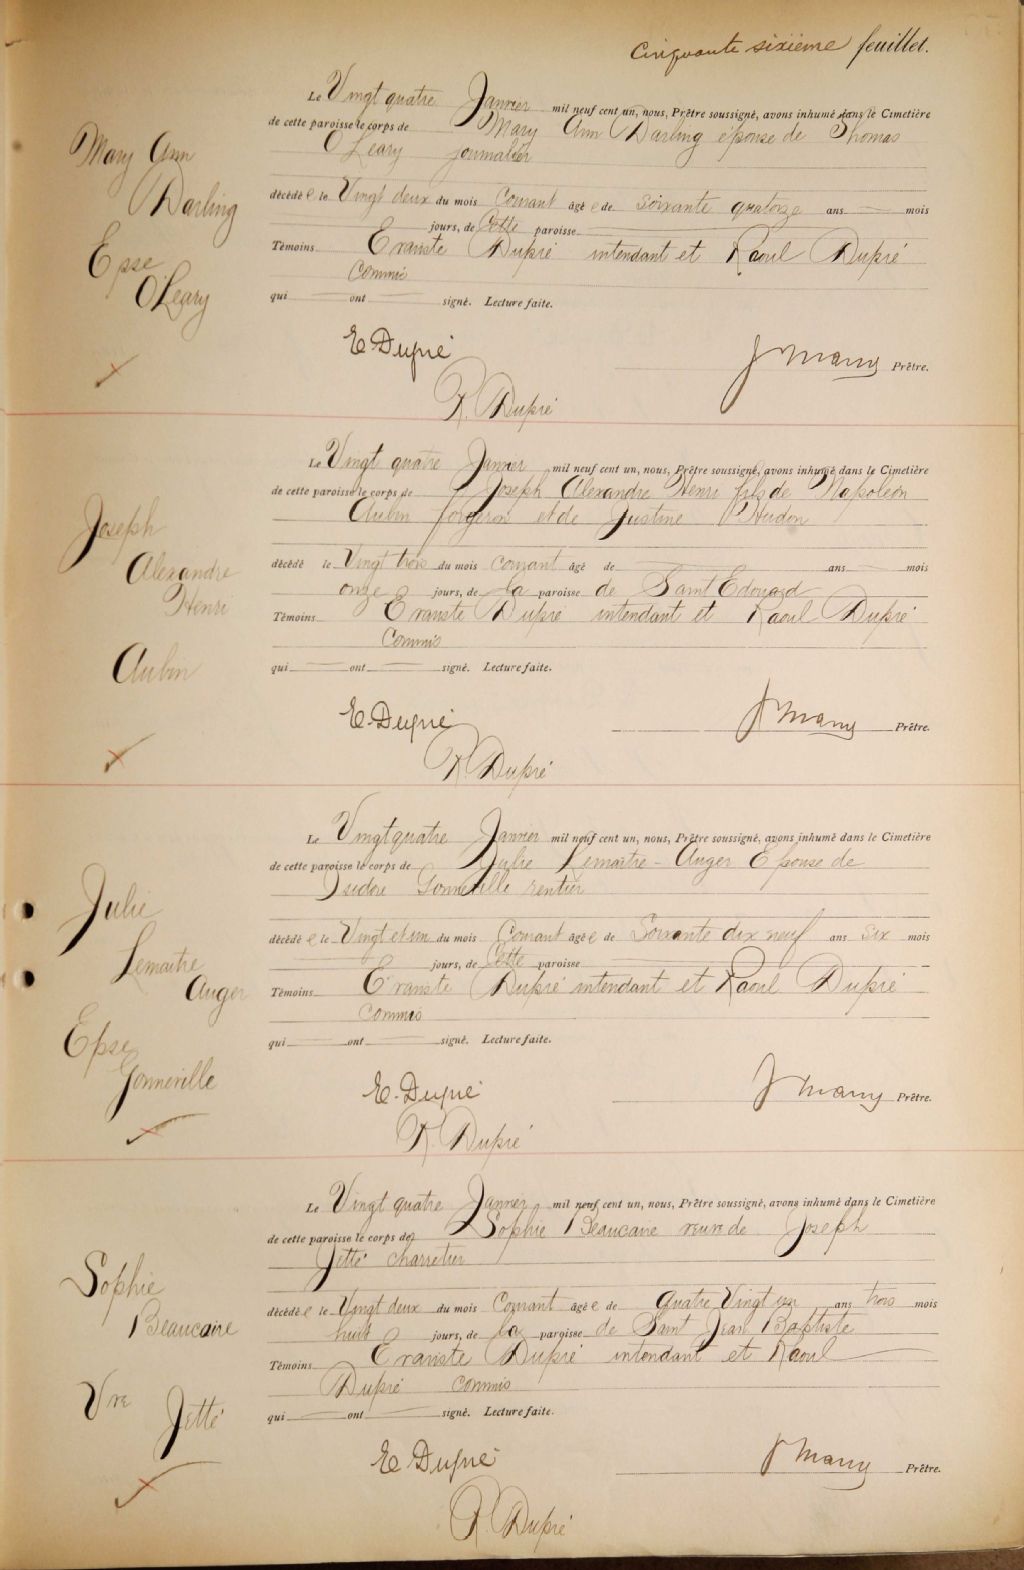 Cinquante sixième feuillet.
Mary Ann
Darling
Epse
O'Leary
Le Vingt quatre Janvier mil neuf cent un, nous, Prêtre soussigné, avons inhumé dans le Cimetière
de cette paroisse le corps de Mary Ann Darling épouse de Thomas
O'Leary journalier
décédé e le Vingt deux du mois Courant âgé e de soixante quatorze ans mois
jours, de Cette paroisse
Témoins Evariste Dupré intendant et Raoul Dupré
Commis
qui ont signé. Lecture faite.
E Dupré
J Marry Prêtre.
R. Dupré
Joseph
Alexandre
Henri
Aubin
Le Vingt quatre Janvier mil neuf cent un, nous, Prêtre soussigné, avons inhumé dans le Cimetière
de cette paroisse le corps de Joseph Alexandre Henri fils de Napoléon
Aubin forgeron et de Justine Hudon
décédé le Vingt trois du mois courant âgé de ans mois
onze jours, de la paroisse de Saint Edouard
Témoins Evariste Dupré intendant et Raoul Dupré
Commis
qui ont signé. Lecture faite.
E. Dupré
Prêtre.
R. Dupré
Julie
Lemaitre
Auger
Epse
Gonneville
Le Vingt quatre Janvier mil neuf cent un, nous, Prêtre soussigné, avons inhumé dans le Cimetière
de cette paroisse le corps de Julie Lemaître - Auger Epouse de
Isidore Gonneville rentier
décédé e le Vingt et un du mois Courant âgé e de Soixante dix neuf ans six mois
jours, de Cette paroisse
Témoins Evariste Dupré intendant et Raoul Dupré
Commis
qui ont signé. Lecture faite.
E. Dupré
Prêtre.
R. Dupré
Sophie
Beaucaire
Vve Jetté
Le Vingt quatre Janvier mil neuf cent un, nous, Prêtre soussigné, avons inhumé dans le Cimetière
de cette paroisse le corps de Sophie Beaucaire veuve de Joseph
Jetté charretier
décédé e le Vingt deux du mois Courant âgé e de Quatre Vingt un ans trois mois
huit jours, de la paroisse de Saint Jean Baptiste
Témoins Evariste Dupré intendant et Raoul
Dupré commis
qui ont signé. Lecture faite.
E Dupré
Prêtre.
R. Dupré